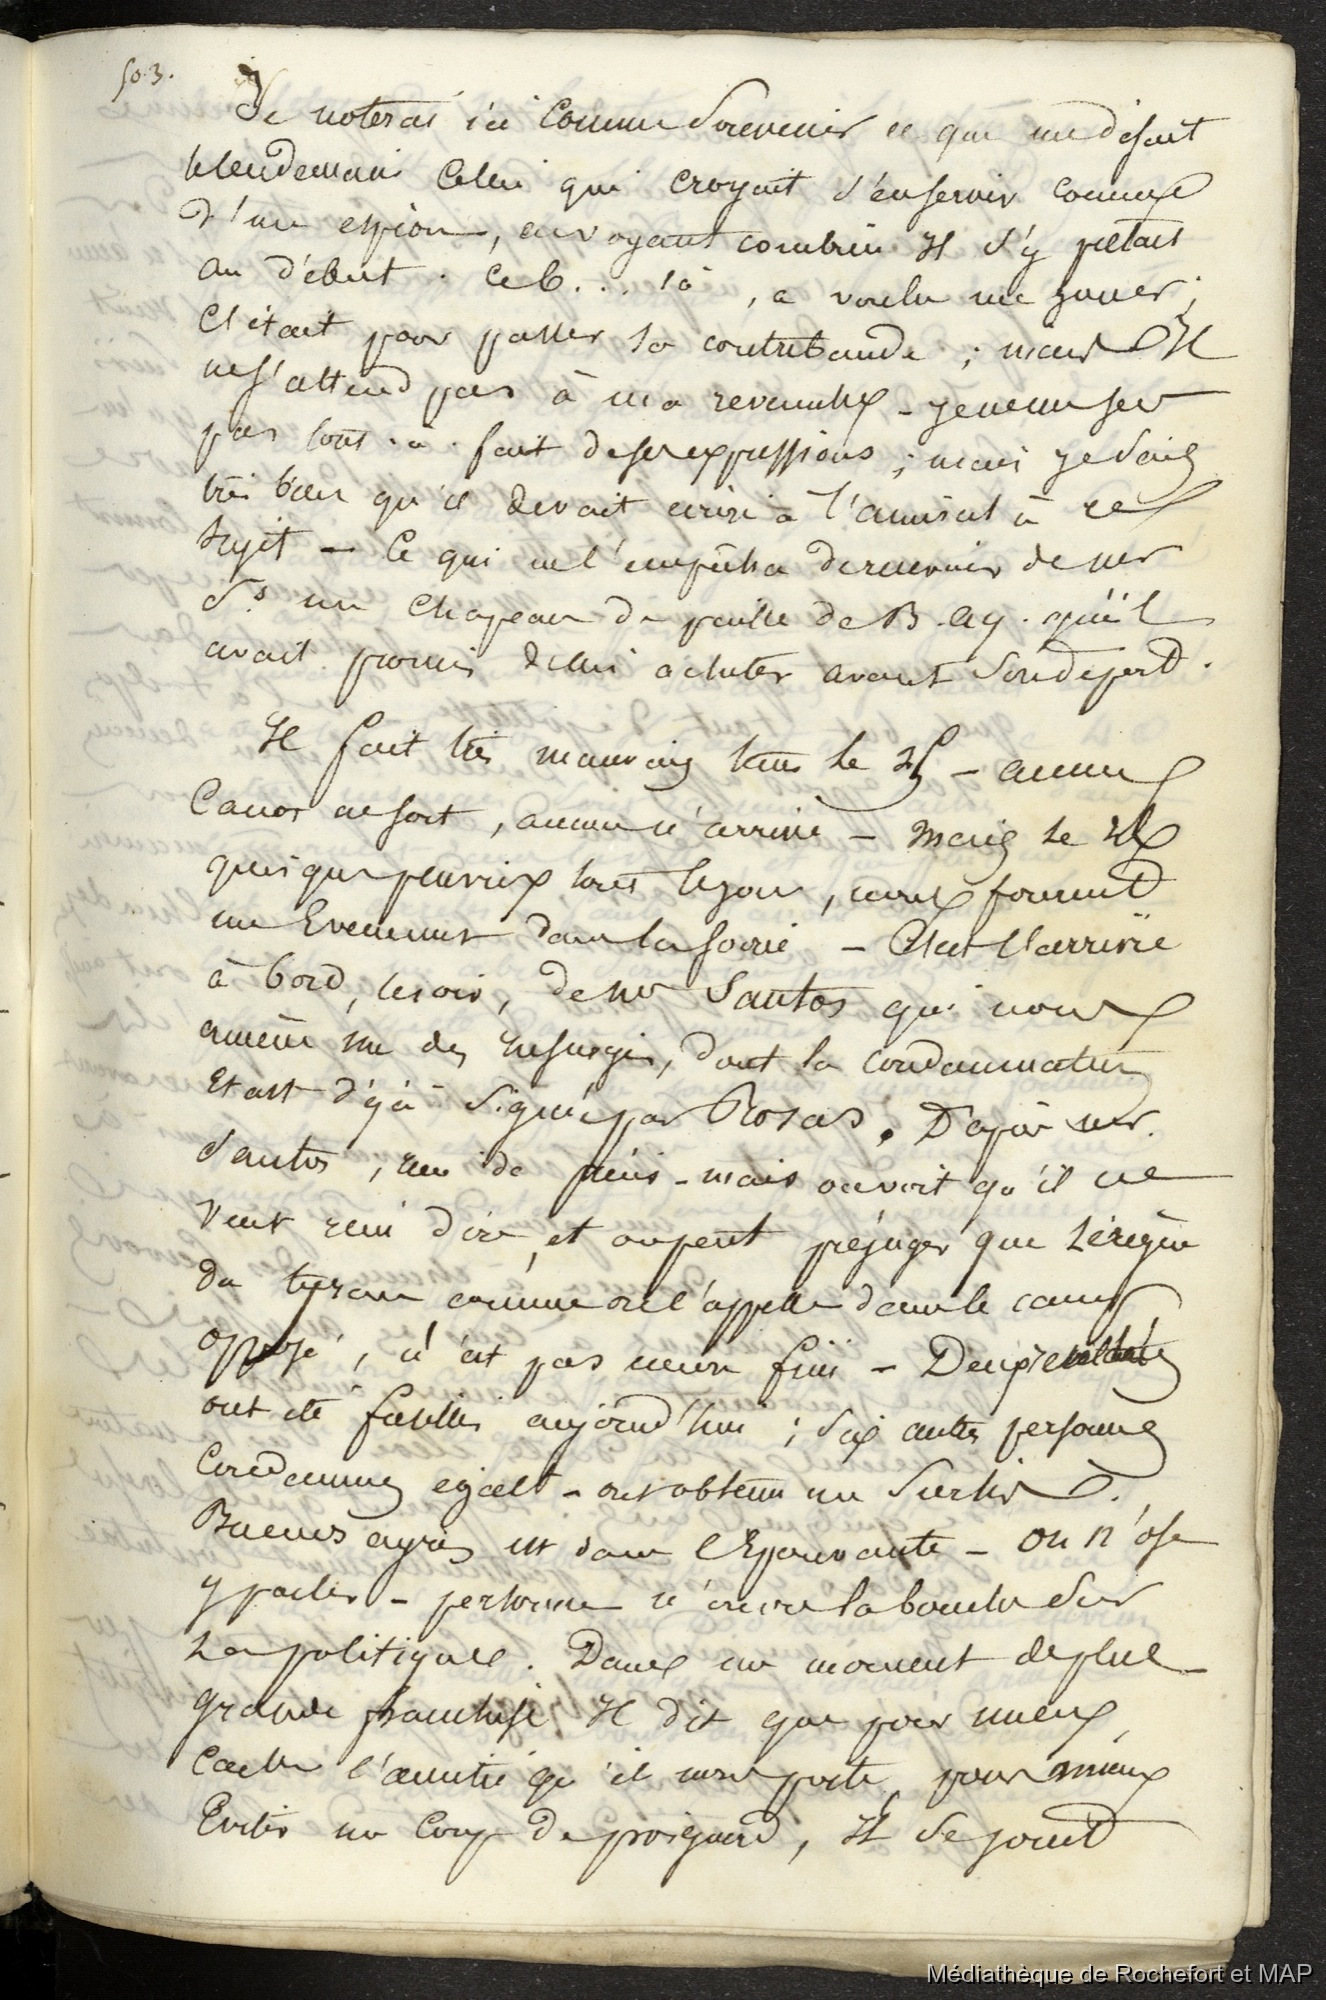 503.
Je noterai ici comme souvenir ce que me disait
le lendemain celui qui croyait s'en servir comme
d'un espion, en voyant combien il s'y prêtait
au début. Ce b... là, a voulu me jouer;
C'était pour passer sa contrebande; mais Il
ne s'attend pas à ma revanche - je ne me sers
pas tout-à-fait de ses expressions; mais je sais
très bien qu'il devait écrire à l'amiral à ce
sujet - Ce qui ne l'empêcha de recevoir de mr
Ss un chapeau de paille de B. ay. qu'il
avait promis de lui acheter avant son départ.
Il fait très mauvais tems le 25 - aucun
Canot ne sort, aucun n'arrive - Mais le
quoique pluvieux tout le jour, nous fournit
un Evenement dans la soirée - C'est l'arrivée
à bord, le soir, de mr Santos qui nous
amène un des insurgés, dont la condamnation
Etait déjà signée par Rosas. D'après mr.
Santos, rien de précis - mais on voit qu'il ne
veut rien dire, et on peut préjuger que le règne
du tyran comme on l'appelle dans le camp
opposé, n'est pas encore fini - Deux
ont été fusillés aujourd'hui; six autres personnes
Condamnées égalt - ont obtenu un sursis.
Buenos ayres est dans l'Epouvante - On n'ose
y parler - personne n'ouvre la bouche sur
La politique. Dans un moment de plus
grande franchise Il dit que pour mieux
Cacher l'amitié qu'il nous porte, pour mieux
Eviter un Coup de poignard, Il se joint
Médiathèque de Rochefort et MAP